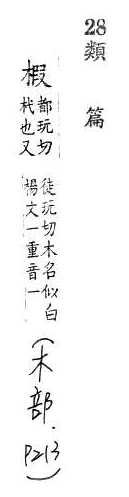 28
類 篇
椴 都玩切杙也又徒玩切木名似白楊文一重音一
(木部.P213)